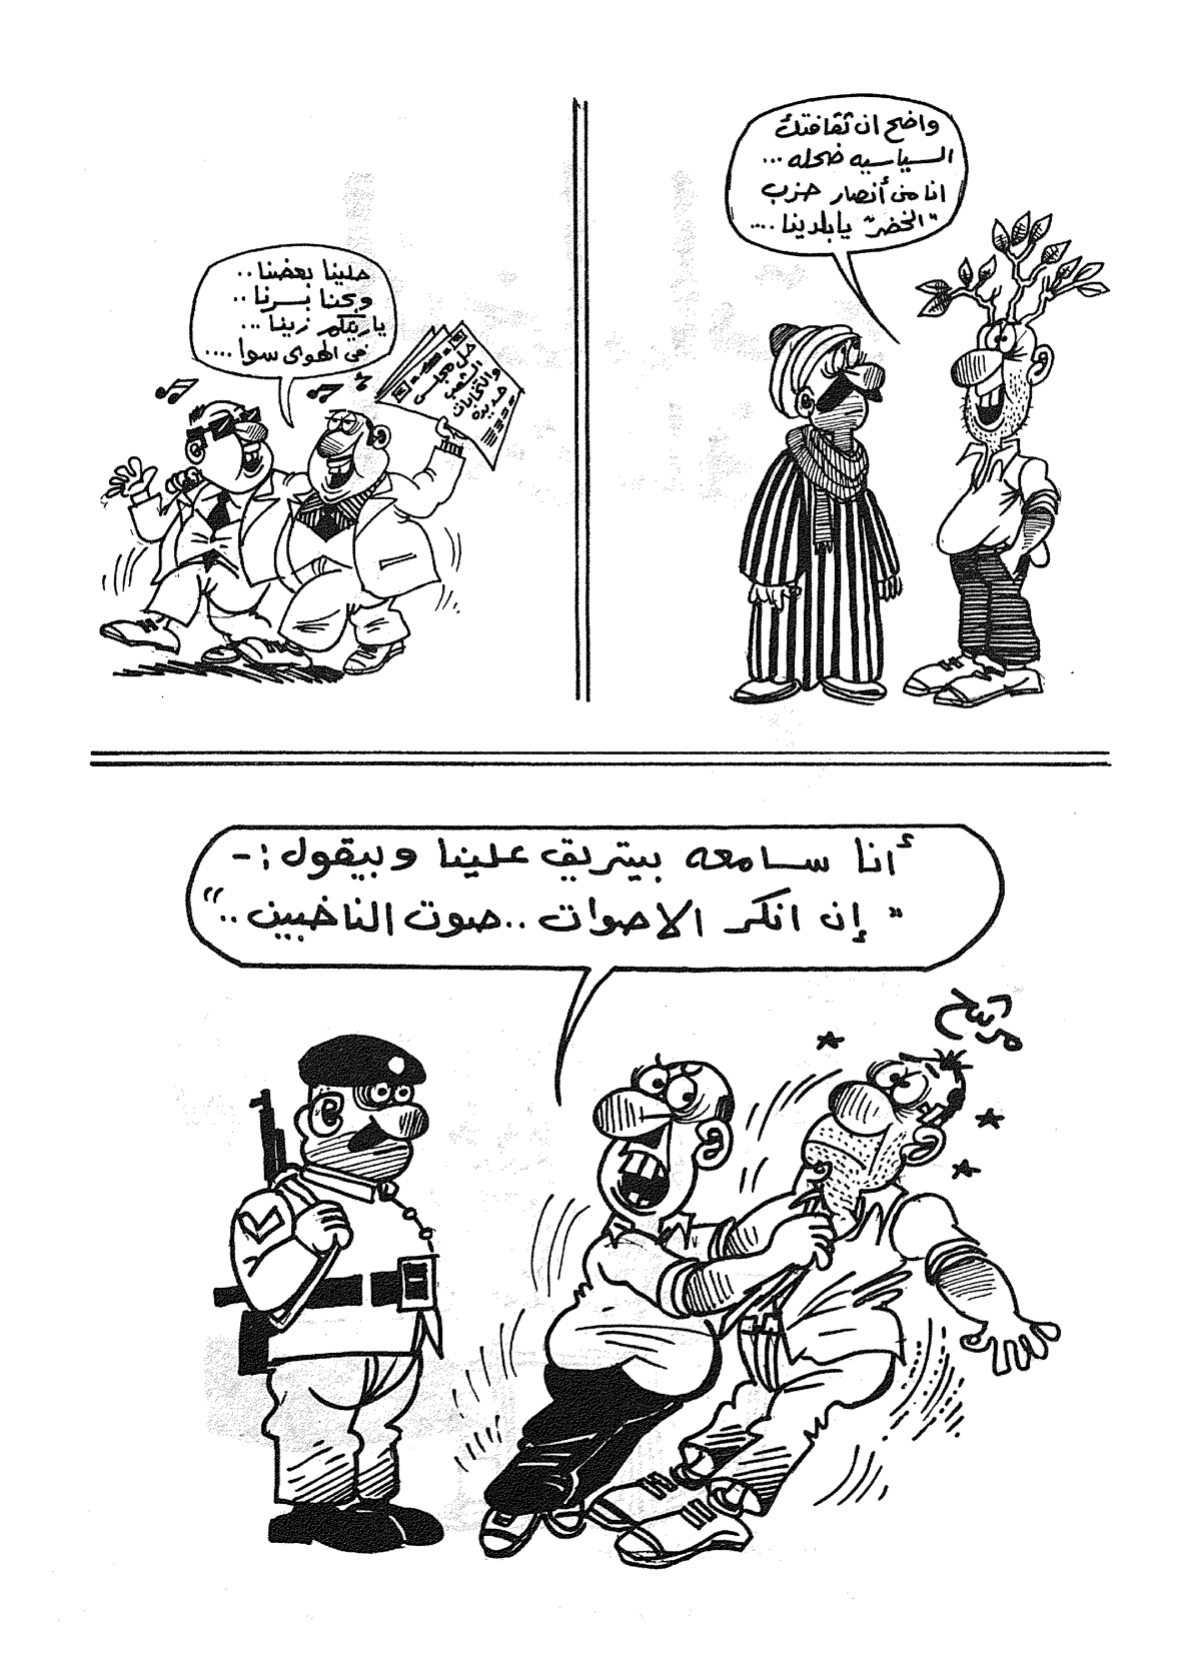 واضح ان ثقافتك
السياسيه ضحله ...
انا من أنصار حزب
"الخضر" يا بلدينا ....
حلينا بعضنا ..
وبحنا بسرنا ..
يا ريتكم زينا ...
فى الهوى سوا ....
حل مجلس
الشعب
وانتخابات
جديده
أنا سامعه بيتريق علينا وبيقول :-
" إن انكر الاصوات .. صوت الناخبين .. "